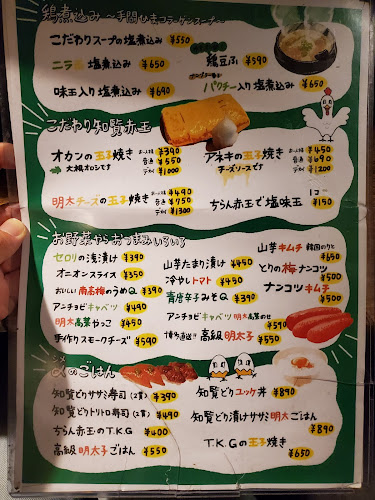 鶏煮込み〜手間ひまコラーゲンスープ〜
こだわりスープの塩煮込み ¥550
ニラ 塩煮込み ¥650
鶏豆ふ ¥590
味玉入り 塩煮込み ¥690
パクチー入り 塩煮込み ¥650
こだわり知覧赤玉
オカンの玉子焼き
¥390
普通 ¥550
デカイ ¥1000
大根オロシです
アネキの玉子焼き
¥450
普通 ¥690
デカイ ¥1200
チーズソースです
明太チーズの玉子焼き
¥490
普通 ¥750
デカイ ¥1300
ちらん赤玉で塩味玉 1コ ¥150
お野菜からおつまみいろいろ
セロリの浅漬け ¥390
オニオンスライス ¥350
おいしい 南高梅のうめQ ¥390
アンチョビキャベツ ¥490
明太高菜やっこ ¥450
手作りスモークチーズ ¥590
山芋たまり漬け ¥450
冷やしトマト ¥450
青唐辛子みそQ ¥390
アンチョビキャベツ 明太高菜のせ ¥590
博多直送!! 高級明太子 ¥550
山芋キムチ 韓国のりと ¥650
とりの梅ナンコツ ¥500
ナンコツキムチ ¥500
〆のごはん
知覧どりササミ寿司(2貫) ¥390
知覧どりトリトロ寿司(2貫) ¥490
ちらん赤玉のT.K.G ¥400
高級明太子ごはん ¥550
知覧どりユッケ丼 ¥890
知覧どり漬けササミ明太ごはん ¥890
T.K.Gの玉子焼き ¥650